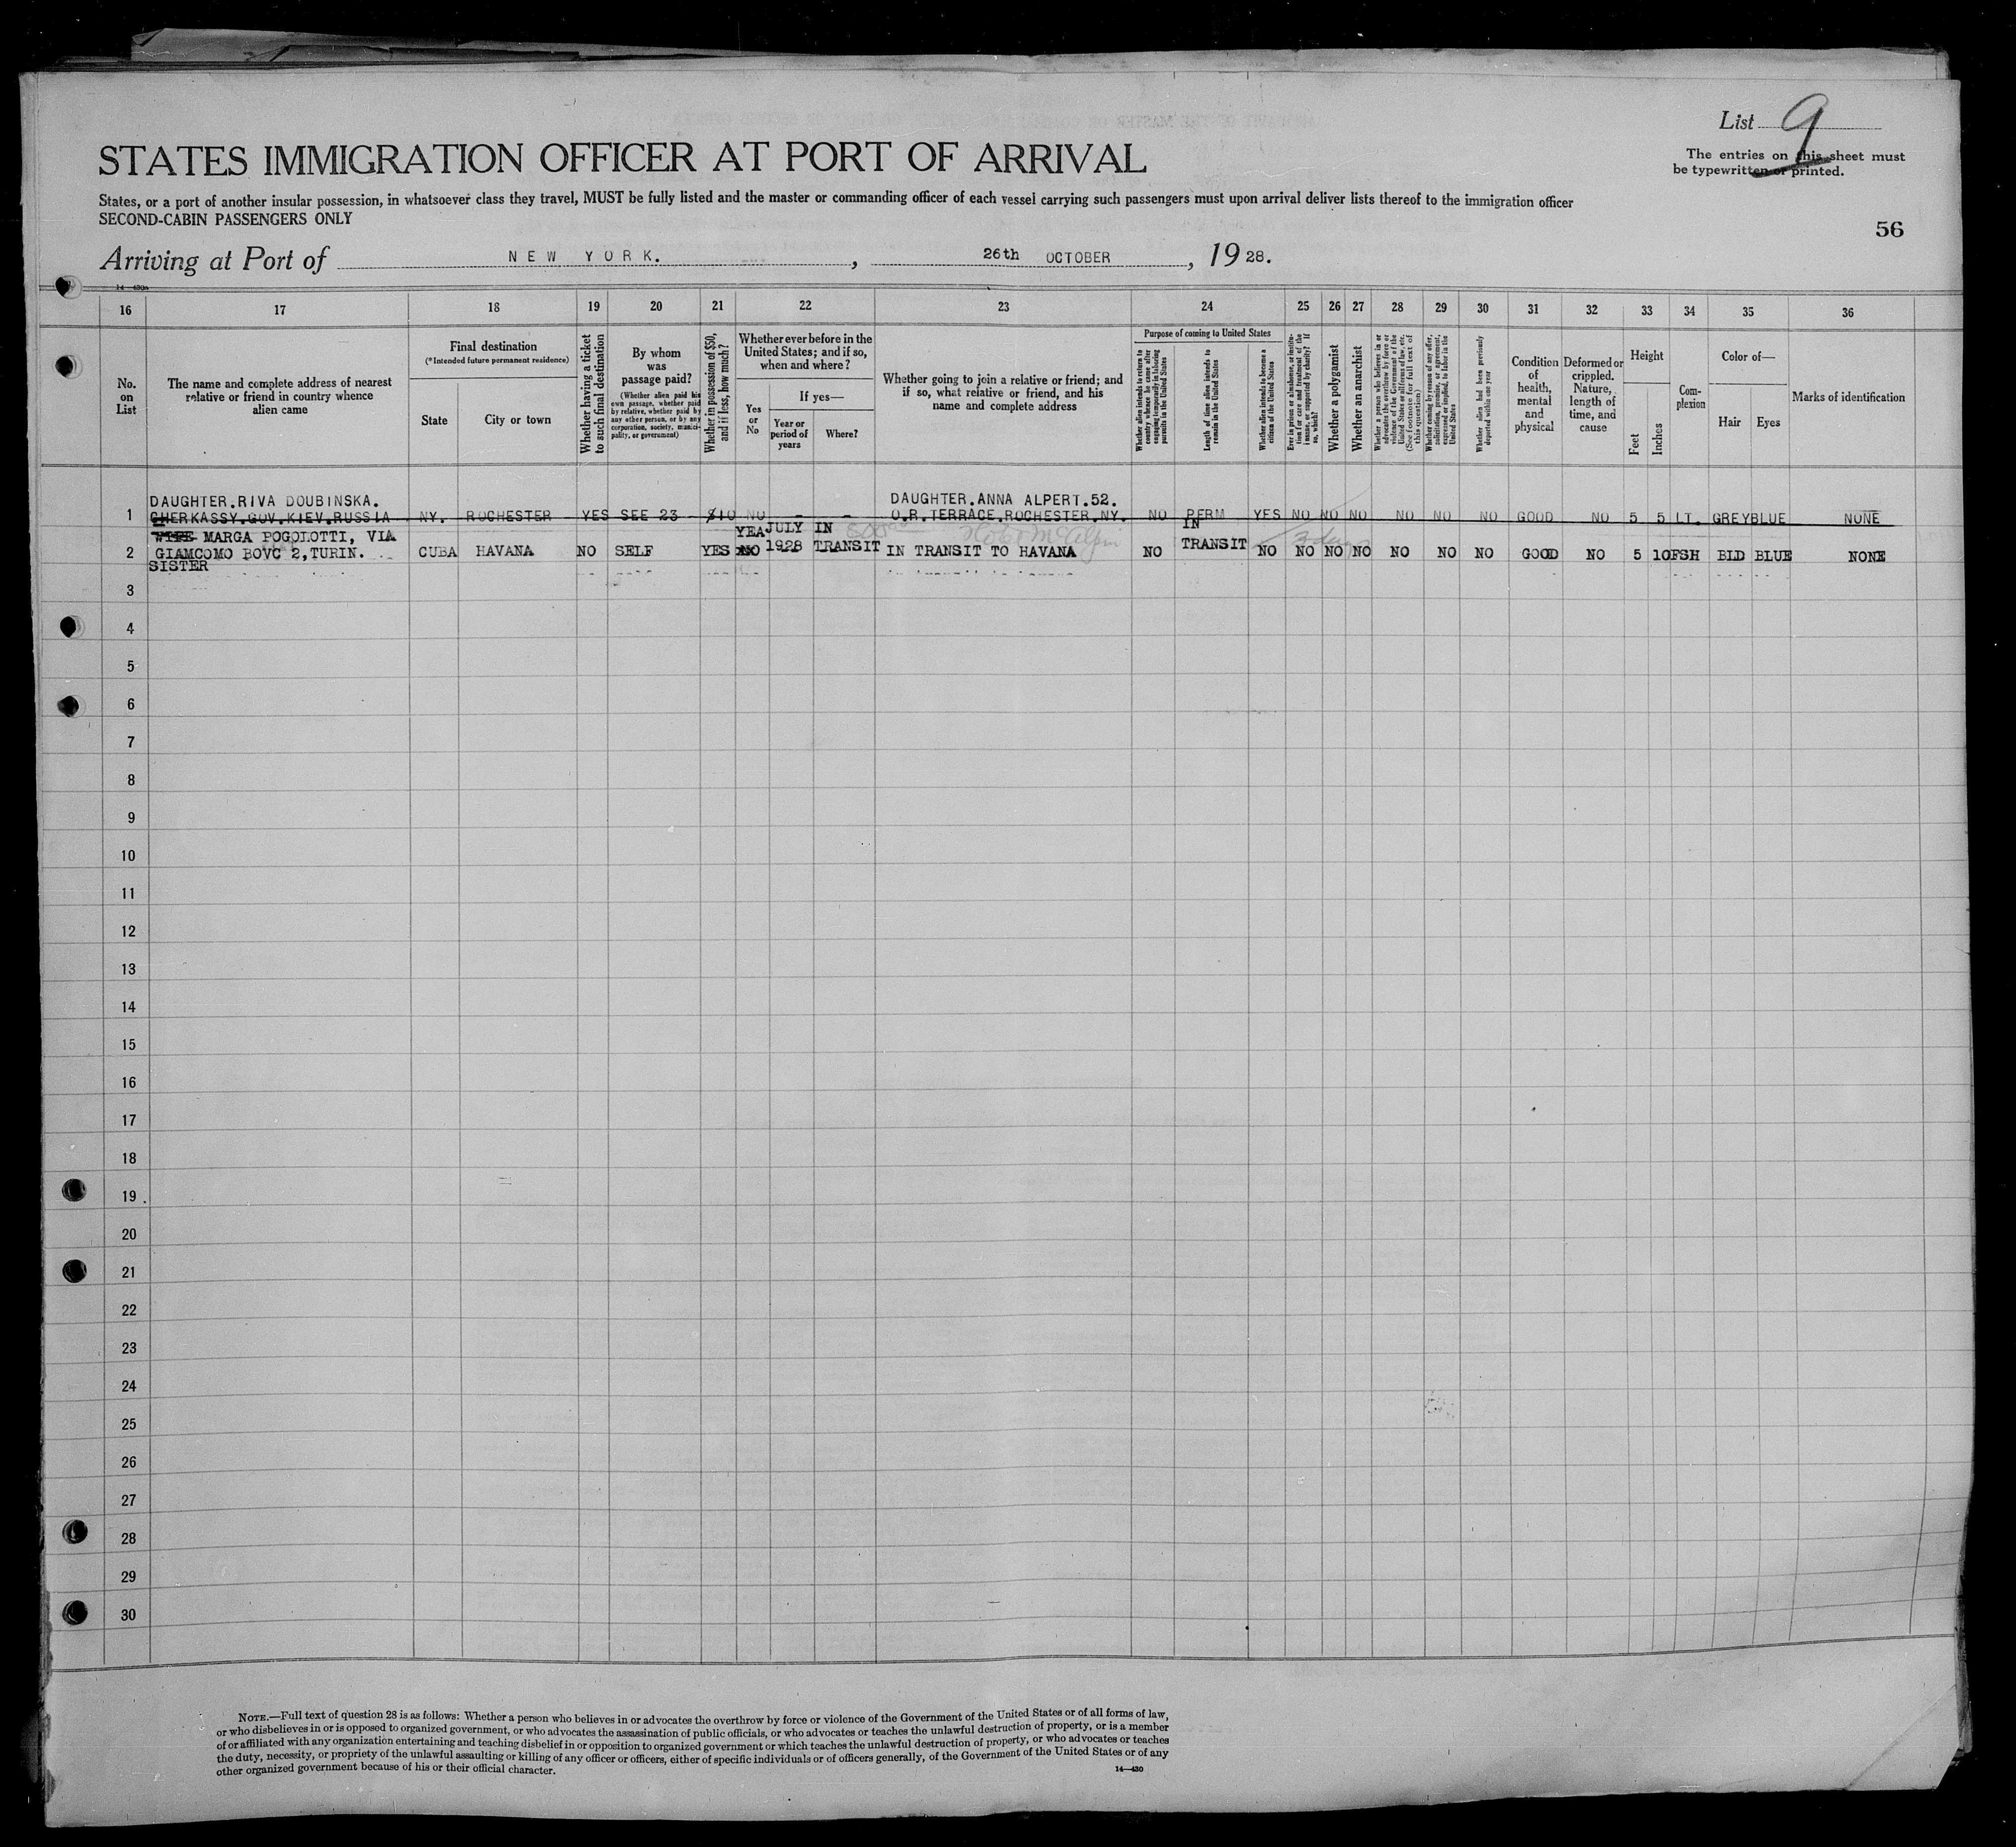 List 9
The entries on this sheet must
be typewritten or printed.
STATES IMMIGRATION OFFICER AT PORT OF ARRIVAL
States, or a port of another insular possession, in whatsoever class they travel, MUST be fully listed and the master or commanding officer of each vessel carrying such passengers must upon arrival deliver lists thereof to the immigration officer
SECOND-CABIN PASSENGERS ONLY
56
Arriving at Port of NEW YORK. , 26th OCTOBER , 19 28.
14—430A
16 17 18 19 20 21 22 23 24 25 26 27 28 29 30 31 32 33 34 35 36
No. on List
The name and complete address of nearest relative or friend in country whence alien came
Final destination
(*Intended future permanent residence)
State
City or town
Whether having a ticket to such final destination
By whom was passage paid?
(Whether alien paid his own passage, whether paid by relative, whether paid by any other person, or by any corporation, society, municipality, or government)
Whether in possession of $50, and if less, how much?
Whether ever before in the United States; and if so, when and where?
Yes or No
If yes—
Year or period of years
Where?
Whether going to join a relative or friend; and if so, what relative or friend, and his name and complete address
Purpose of coming to United States
Whether alien intends to return to country whence he came after engaging temporarily in laboring pursuits in the United States
Length of time alien intends to remain in the United States
Whether alien intends to become a citizen of the United States
Ever in prison or almshouse, or institution for care and treatment of the insane, or supported by charity? If so, which?
Whether a polygamist
Whether an anarchist
Whether a person who believes in or advocates the overthrow by force or violence of the Government of the United States or all forms of law, etc. (See footnote for full text of this question)
Whether coming by reason of any offer, solicitation, promise, or agreement, expressed or implied, to labor in the United States
Whether alien had been previously deported within one year
Condition of health, mental and physical
Deformed or crippled. Nature, length of time, and cause
Height
Feet
Inches
Complexion
Color of—
Hair
Eyes
Marks of identification
DAUGHTER.RIVA DOUBINSKA. DAUGHTER.ANNA ALPERT.52.
1 CHERKASSY.GOV.KIEV.RUSSIA NY. ROCHESTER YES SEE 23 $10 NO - - O.R.TERRACE.ROCHESTER.NY. NO PERM YES NO NO NO NO NO NO GOOD NO 5 5 LT. GREY BLUE NONE
WIFE MARGA POGOLOTTI, VIA YEA JULY IN Hotel McAlpin IN
2 GIAMCOMO BOVC 2,TURIN. CUBA HAVANA NO SELF YES NO 1928 TRANSIT IN TRANSIT TO HAVANA NO TRANSIT NO NO NO NO NO NO NO GOOD NO 5 10 FSH BLD BLUE NONE
SISTER
3
4
5
6
7
8
9
10
11
12
13
14
15
16
17
18
19
20
21
22
23
24
25
26
27
28
29
30
NOTE.—Full text of question 28 is as follows: Whether a person who believes in or advocates the overthrow by force or violence of the Government of the United States or of all forms of law,
or who disbelieves in or is opposed to organized government, or who advocates the assassination of public officials, or who advocates or teaches the unlawful destruction of property, or is a member
of or affiliated with any organization entertaining and teaching disbelief in or opposition to organized government or which teaches the unlawful destruction of property, or who advocates or teaches
the duty, necessity, or propriety of the unlawful assaulting or killing of any officer or officers, either of specific individuals or of officers generally, of the Government of the United States or of any
other organized government because of his or their official character.
14—430